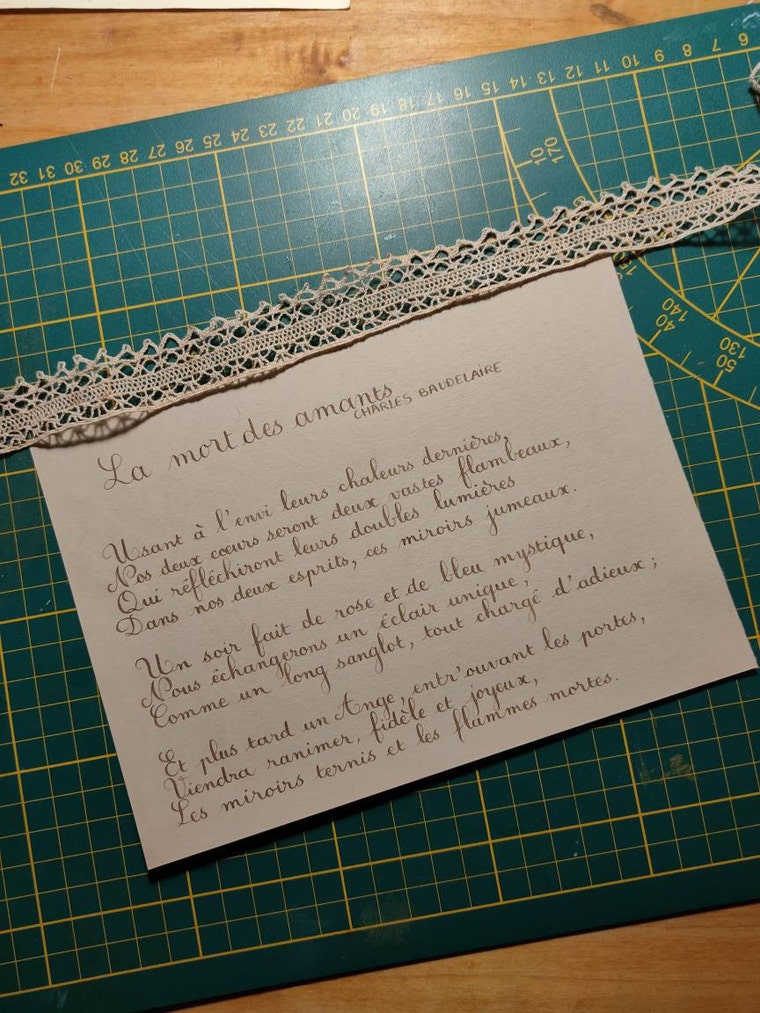 6 7 8 9 10 11 12 13 14 15 16 17 18 19 20 21 22 23 24 25 26 27 28 29 30 31 32
10 170
40 140
50 130
La mort des amants
CHARLES BAUDELAIRE
Usant à l'envi leurs chaleurs dernières,
Nos deux cœurs seront deux vastes flambeaux,
Qui réfléchiront leurs doubles lumières
Dans nos deux esprits, ces miroirs jumeaux.
Un soir fait de rose et de bleu mystique,
Nous échangerons un éclair unique,
Comme un long sanglot, tout chargé d'adieux ;
Et plus tard un Ange, entr'ouvant les portes,
Viendra ranimer, fidèle et joyeux,
Les miroirs ternis et les flammes mortes.